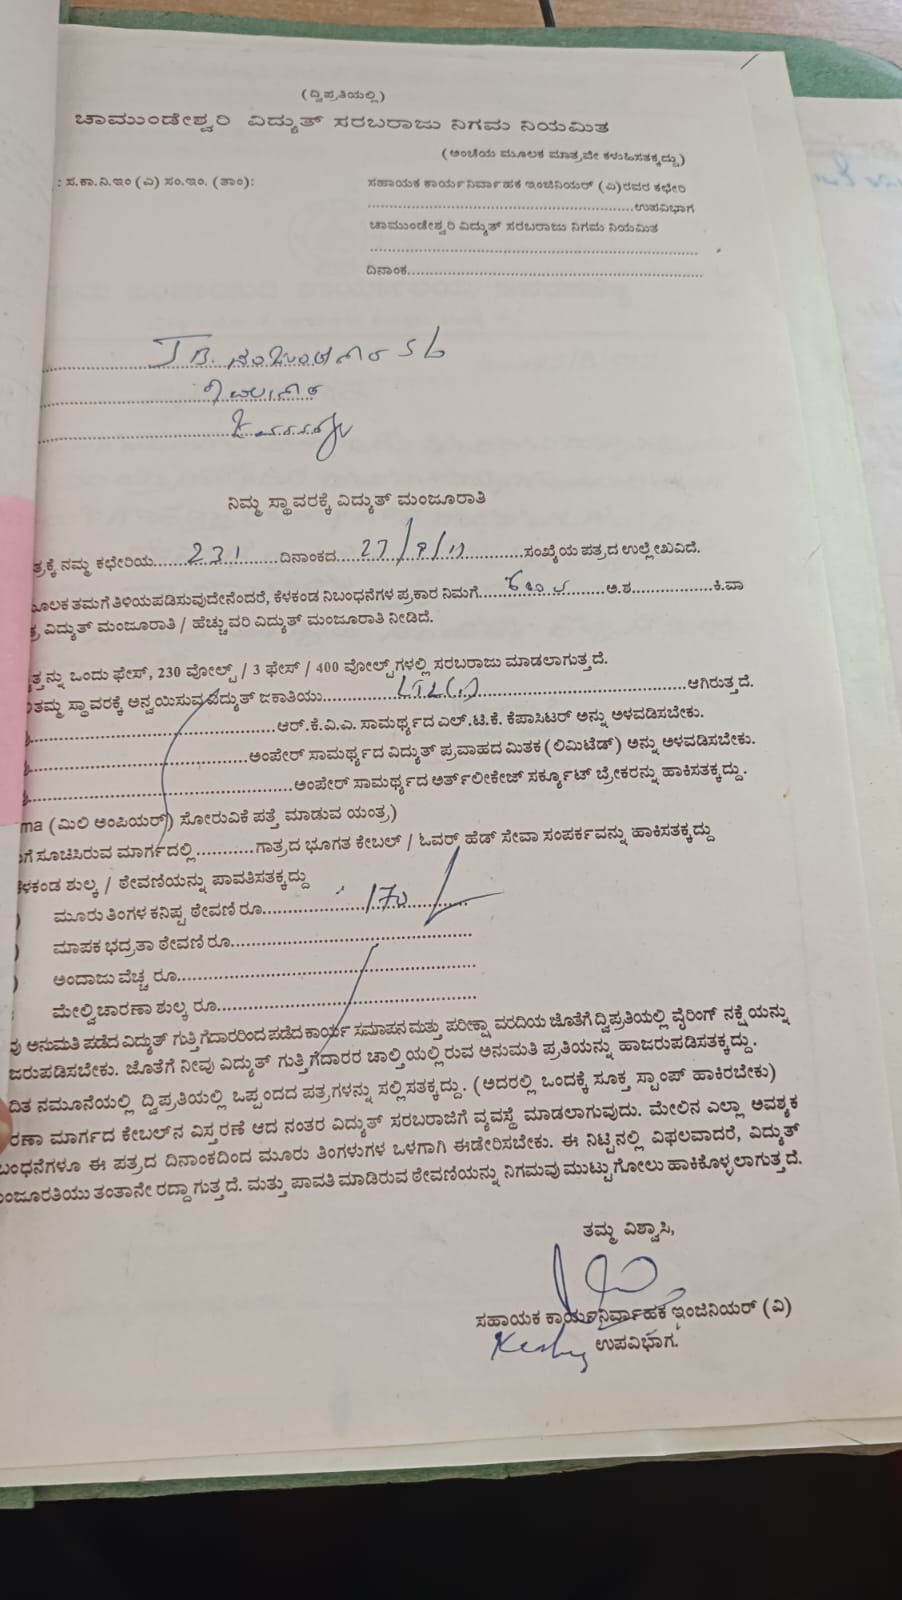 (ದ್ವಿಪ್ರತಿಯಲ್ಲಿ)
ಚಾಮುಂಡೇಶ್ವರಿ ವಿದ್ಯುತ್ ಸರಬರಾಜು ನಿಗಮ ನಿಯಮಿತ
(ಅಂಚೆಯ ಮೂಲಕ ಮಾತ್ರವೇ ಕಳುಹಿಸತಕ್ಕದ್ದು)
: ಸ.ಕಾ.ನಿ.ಇಂ (ವಿ) ಸಂ.ಇಂ. (ತಾಂ):
ಸಹಾಯಕ ಕಾರ್ಯನಿರ್ವಾಹಕ ಇಂಜಿನಿಯರ್ (ವಿ)ರವರ ಕಛೇರಿ
........ಉಪವಿಭಾಗ
ಚಾಮುಂಡೇಶ್ವರಿ ವಿದ್ಯುತ್ ಸರಬರಾಜು ನಿಗಮ ನಿಯಮಿತ
ದಿನಾಂಕ........
ನಿಮ್ಮ ಸ್ಥಾವರಕ್ಕೆ ವಿದ್ಯುತ್ ಮಂಜೂರಾತಿ
ತ್ರಕ್ಕೆ ನಮ್ಮ ಕಛೇರಿಯ.....231.....ದಿನಾಂಕದ...27/9/11.......ಸಂಖ್ಯೆಯ ಪತ್ರದ ಉಲ್ಲೇಖವಿದೆ.
ಮೂಲಕ ತಮಗೆ ತಿಳಿಯಪಡಿಸುವುದೇನೆಂದರೆ, ಕೆಳಕಂಡ ನಿಬಂಧನೆಗಳ ಪ್ರಕಾರ ನಿಮಗೆ........ಅ.ಶ........ಕಿ.ವಾ
ವಿದ್ಯುತ್ ಮಂಜೂರಾತಿ / ಹೆಚ್ಚುವರಿ ವಿದ್ಯುತ್ ಮಂಜೂರಾತಿ ನೀಡಿದೆ.
ತ್ತನ್ನು ಒಂದು ಫೇಸ್, 230 ವೋಲ್ಟ್ / 3 ಫೇಸ್ / 400 ವೋಲ್ಟ್‌ಗಳಲ್ಲಿ ಸರಬರಾಜು ಮಾಡಲಾಗುತ್ತದೆ.
ತಮ್ಮ ಸ್ಥಾವರಕ್ಕೆ ಅನ್ವಯಿಸುವ ವಿದ್ಯುತ್ ಜಕಾತಿಯು........ಆಗಿರುತ್ತದೆ.
........ಆರ್.ಕೆ.ವಿ.ಎ. ಸಾಮರ್ಥ್ಯದ ಎಲ್.ಟಿ.ಕೆ. ಕೆಪಾಸಿಟರ್ ಅನ್ನು ಅಳವಡಿಸಬೇಕು.
........ಅಂಪೇರ್ ಸಾಮರ್ಥ್ಯದ ವಿದ್ಯುತ್ ಪ್ರವಾಹದ ಮಿತಕ (ಲಿಮಿಟೆಡ್) ಅನ್ನು ಅಳವಡಿಸಬೇಕು.
........ಅಂಪೇರ್ ಸಾಮರ್ಥ್ಯದ ಅರ್ತ್‌ಲೀಕೇಜ್ ಸರ್ಕ್ಯೂಟ್ ಬ್ರೇಕರನ್ನು ಹಾಕಿಸತಕ್ಕದ್ದು.
ma (ಮಿಲಿ ಅಂಪಿಯರ್) ಸೋರುವಿಕೆ ಪತ್ತೆ ಮಾಡುವ ಯಂತ್ರ)
ಗೆ ಸೂಚಿಸಿರುವ ಮಾರ್ಗದಲ್ಲಿ...........ಗಾತ್ರದ ಭೂಗತ ಕೇಬಲ್ / ಓವರ್ ಹೆಡ್ ಸೇವಾ ಸಂಪರ್ಕವನ್ನು ಹಾಕಿಸತಕ್ಕದ್ದು
ಳಕಂಡ ಶುಲ್ಕ / ಠೇವಣಿಯನ್ನು ಪಾವತಿಸತಕ್ಕದ್ದು
) ಮೂರು ತಿಂಗಳ ಕನಿಷ್ಟ ಠೇವಣಿ ರೂ........170........
) ಮಾಪಕ ಭದ್ರತಾ ಠೇವಣಿ ರೂ........
) ಅಂದಾಜು ವೆಚ್ಚ ರೂ........
ಮೇಲ್ವಿಚಾರಣಾ ಶುಲ್ಕ ರೂ........
ವು ಅನುಮತಿ ಪಡೆದ ವಿದ್ಯುತ್ ಗುತ್ತಿಗೆದಾರರಿಂದ ಪಡೆದ ಕಾರ್ಯ ಸಮಾಪನ ಮತ್ತು ಪರೀಕ್ಷಾ ವರದಿಯ ಜೊತೆಗೆ ದ್ವಿಪ್ರತಿಯಲ್ಲಿ ವೈರಿಂಗ್ ನಕ್ಷೆಯನ್ನು
ಜರುಪಡಿಸಬೇಕು. ಜೊತೆಗೆ ನೀವು ವಿದ್ಯುತ್ ಗುತ್ತಿಗೆದಾರರ ಚಾಲ್ತಿಯಲ್ಲಿರುವ ಅನುಮತಿ ಪ್ರತಿಯನ್ನು ಹಾಜರುಪಡಿಸತಕ್ಕದ್ದು.
ದಿತ ನಮೂನೆಯಲ್ಲಿ ದ್ವಿಪ್ರತಿಯಲ್ಲಿ ಒಪ್ಪಂದದ ಪತ್ರಗಳನ್ನು ಸಲ್ಲಿಸತಕ್ಕದ್ದು. (ಅದರಲ್ಲಿ ಒಂದಕ್ಕೆ ಸೂಕ್ತ ಸ್ಟಾಂಪ್ ಹಾಕಿರಬೇಕು)
ರಣಾ ಮಾರ್ಗದ ಕೇಬಲ್‌ನ ವಿಸ್ತರಣೆ ಆದ ನಂತರ ವಿದ್ಯುತ್ ಸರಬರಾಜಿಗೆ ವ್ಯವಸ್ಥೆ ಮಾಡಲಾಗುವುದು. ಮೇಲಿನ ಎಲ್ಲಾ ಅವಶ್ಯಕ
ಬಂಧನೆಗಳೂ ಈ ಪತ್ರದ ದಿನಾಂಕದಿಂದ ಮೂರು ತಿಂಗಳುಗಳ ಒಳಗಾಗಿ ಈಡೇರಿಸಬೇಕು. ಈ ನಿಟ್ಟಿನಲ್ಲಿ ವಿಫಲವಾದರೆ, ವಿದ್ಯುತ್
ಂಜೂರತಿಯು ತಂತಾನೇ ರದ್ದಾಗುತ್ತದೆ. ಮತ್ತು ಪಾವತಿ ಮಾಡಿರುವ ಠೇವಣಿಯನ್ನು ನಿಗಮವು ಮುಟ್ಟುಗೋಲು ಹಾಕಿಕೊಳ್ಳಲಾಗುತ್ತದೆ.
ತಮ್ಮ ವಿಶ್ವಾಸಿ,
ಸಹಾಯಕ ಕಾರ್ಯನಿರ್ವಾಹಕ ಇಂಜಿನಿಯರ್ (ವಿ)
ಉಪವಿಭಾಗ.